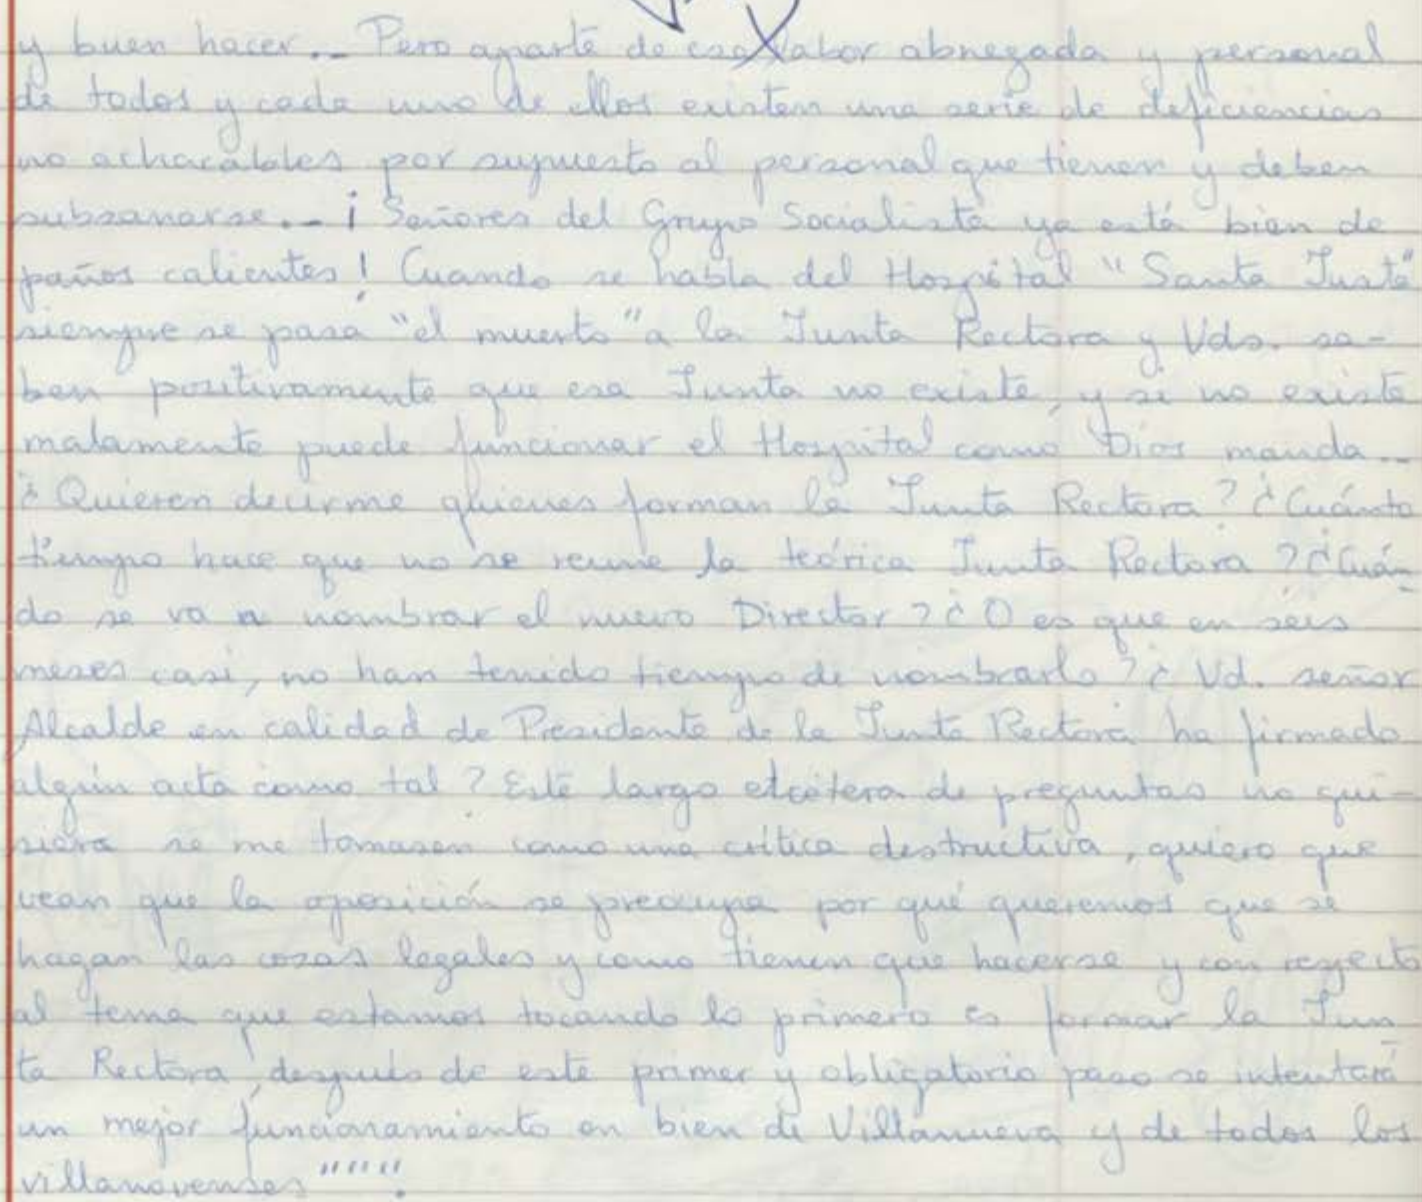 y buen hacer.- Pero aparte de esa labor abnegada y personal
de todos y cada uno de ellos existen una serie de deficiencias
no achacables por supuesto al personal que tienen y deben
subsanarse.- ¡ Señores del Grupo Socialista ya está bien de
paños calientes! Cuando se habla del Hospital "Santa Justa"
siempre se pasa "el muerto" a la Junta Rectora y Vds. sa-
ben positivamente que esa Junta no existe, y si no existe
malamente puede funcionar el Hospital como Dios manda.-
¿Quieren decirme quienes forman la Junta Rectora? ¿Cuánto
tiempo hace que no se reune la teórica Junta Rectora? ¿Cuán-
do se va a nombrar el nuevo Director? ¿O es que en seis
meses casi, no han tenido tiempo de nombrarlo? ¿Vd. señor
Alcalde en calidad de Presidente de la Junta Rectora ha firmado
algún acta como tal? Este largo etcétera de preguntas no qui-
siera se me tomasen como una crítica destructiva, quiero que
vean que la oposición se preocupa por qué queremos que se
hagan las cosas legales y como tienen que hacerse y con respecto
al tema que estamos tocando lo primero es formar la Jun-
ta Rectora, después de este primer y obligatorio paso se intentará
un mejor funcionamiento en bien de Villanueva y de todos los
villanovenses""".